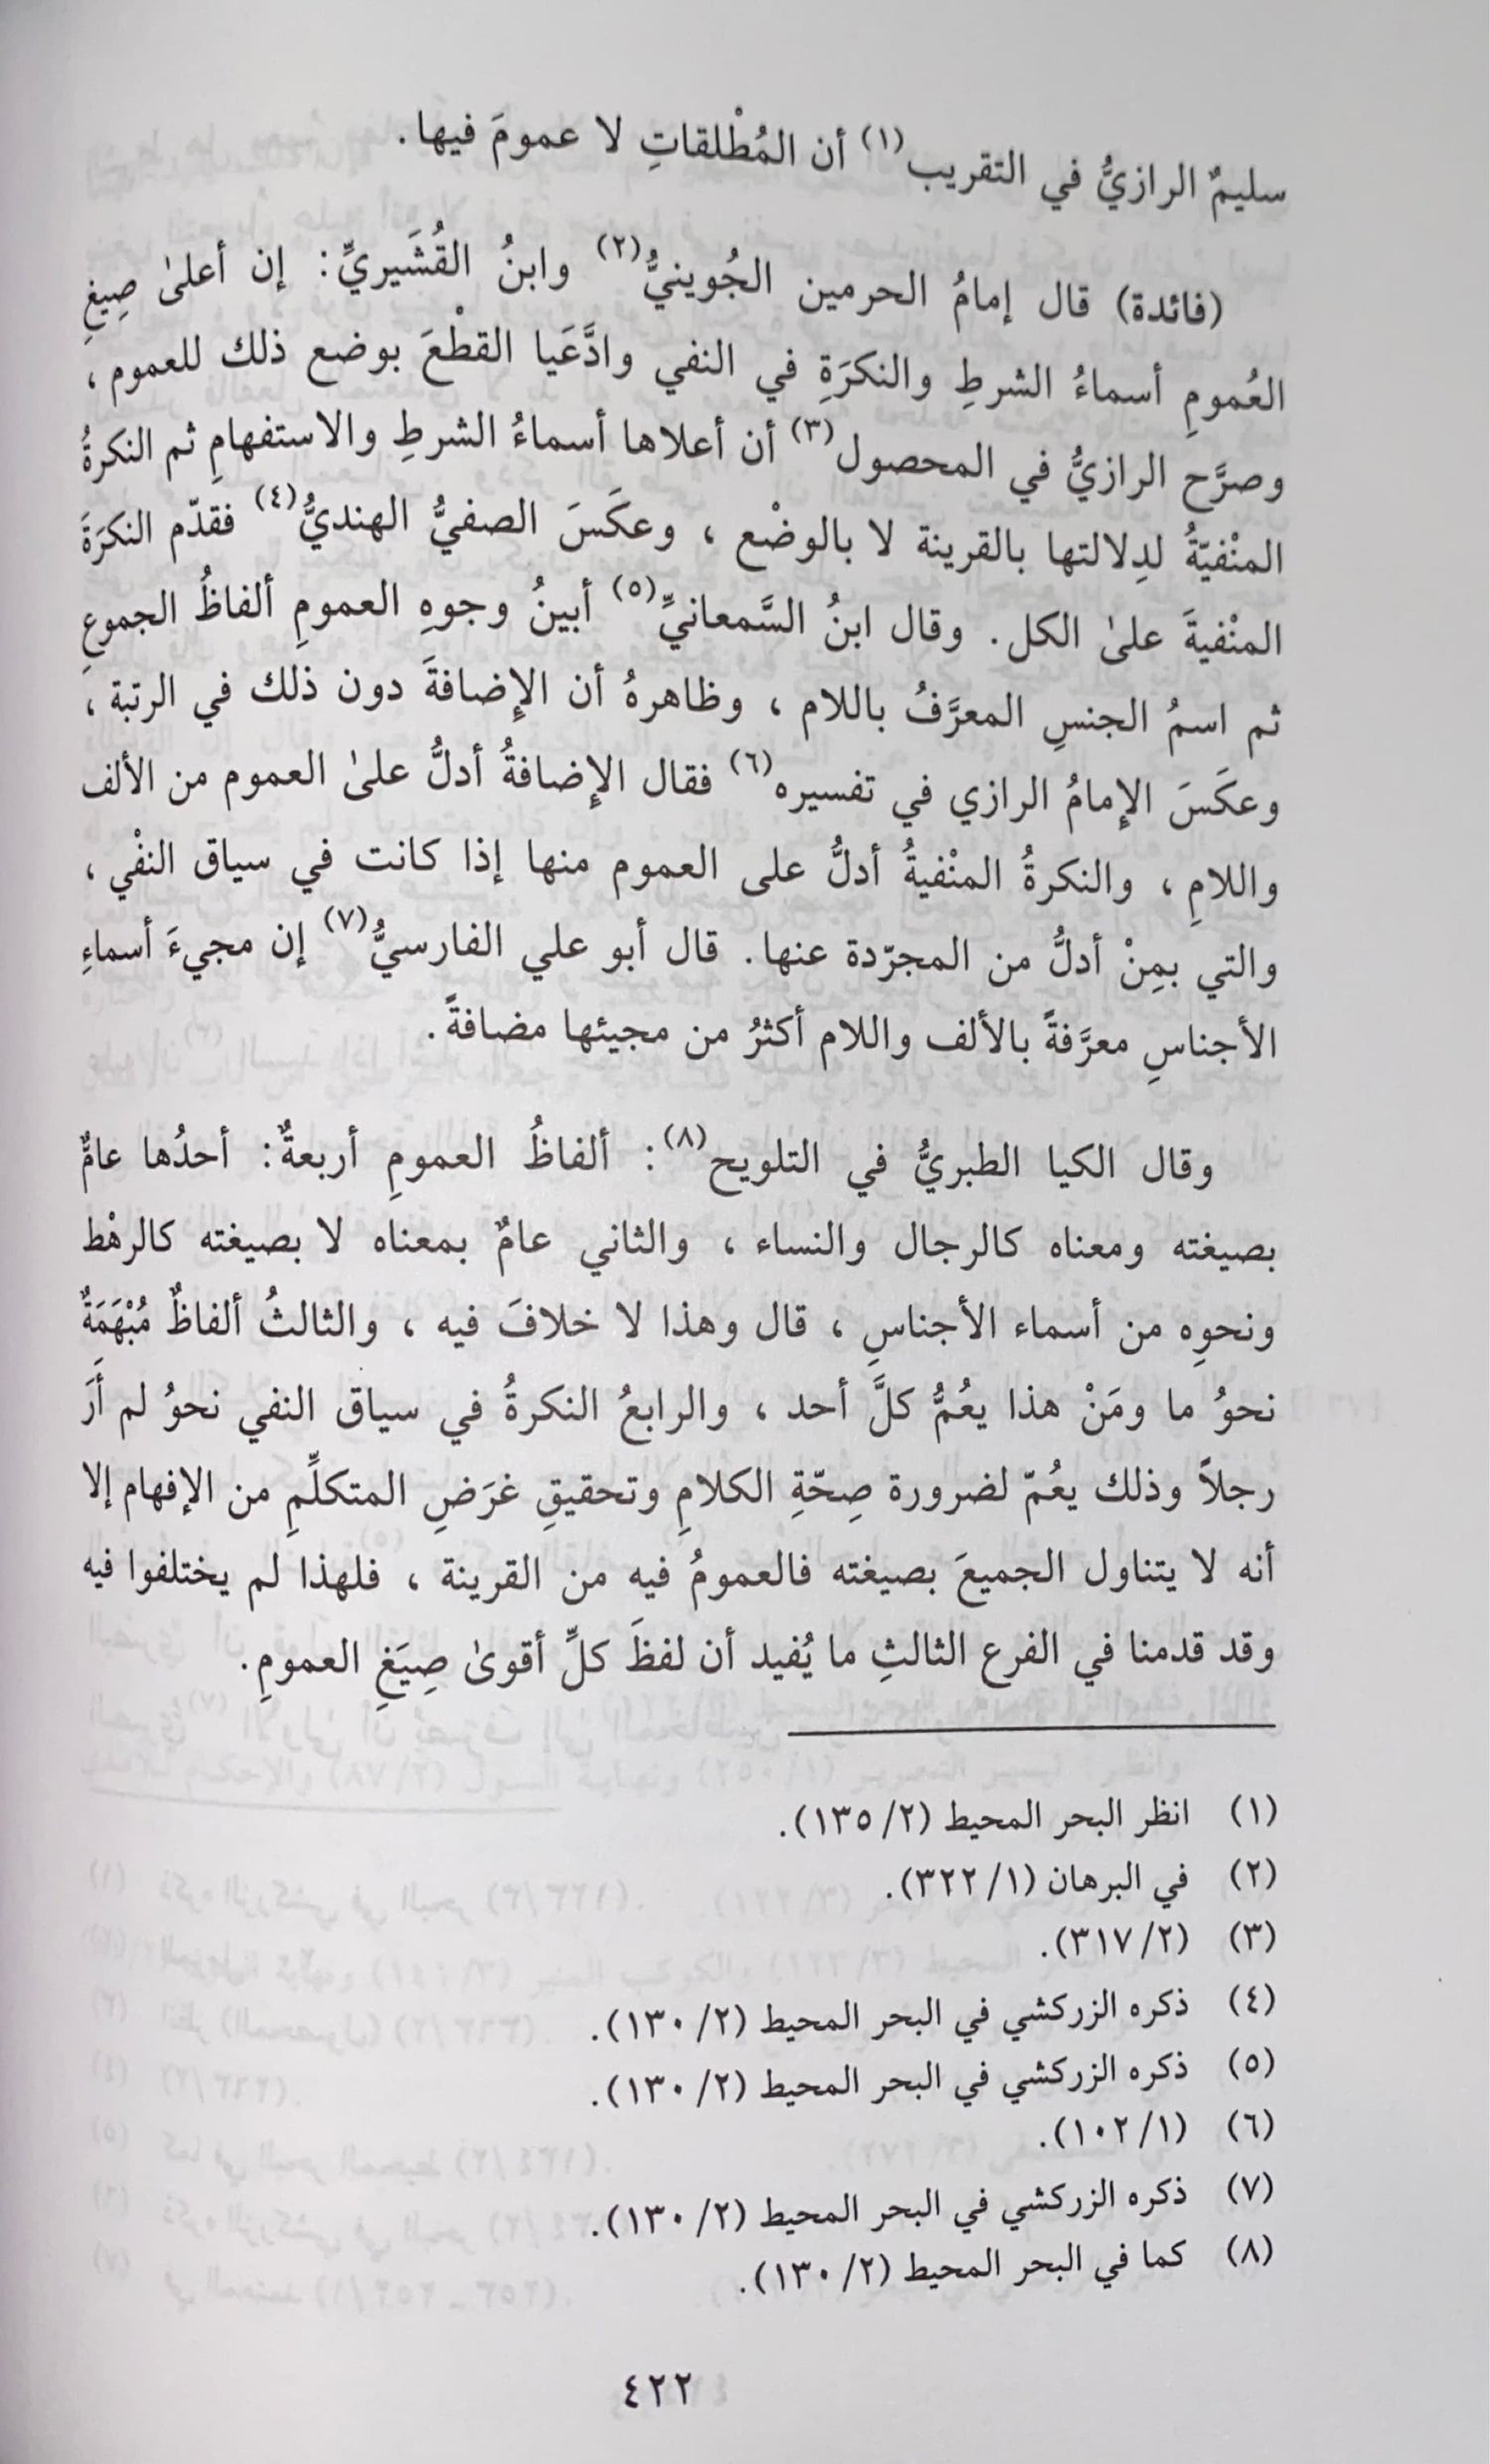 سليمٌ الرازيُّ في التقريب(١) أن المُطْلقاتِ لا عمومَ فيها.
(فائدة) قال إمامُ الحرمين الجُوينيُّ(٢) وابنُ القُشَيريِّ: إن أعلىٰ صِيغِ
العُمومِ أسماءُ الشرطِ والنكرَةِ في النفي وادَّعَيا القطْعَ بوضع ذلك للعموم،
وصرَّح الرازيُّ في المحصول(٣) أن أعلاها أسماءُ الشرطِ والاستفهامِ ثم النكرةُ
المنْفيّةُ لدِلالتها بالقرينة لا بالوضْع، وعكَسَ الصفيُّ الهنديُّ(٤) فقدّم النكرَةَ
المنْفيةَ علىٰ الكل. وقال ابنُ السَّمعانيِّ(٥) أبينُ وجوهِ العمومِ ألفاظُ الجموعِ
ثم اسمُ الجنسِ المعرَّفُ باللام، وظاهرهُ أن الإضافةَ دون ذلك في الرتبة،
وعكَسَ الإمامُ الرازي في تفسيره(٦) فقال الإضافةُ أدلُّ علىٰ العموم من الألف
واللامِ، والنكرةُ المنْفيةُ أدلُّ على العموم منها إذا كانت في سياق النفْي،
والتي بمِنْ أدلُّ من المجرّدة عنها. قال أبو علي الفارسيُّ(٧) إن مجيءَ أسماءِ
الأجناسِ معرَّفةً بالألف واللام أكثرُ من مجيئها مضافةً.
وقال الكيا الطبريُّ في التلويح(٨): ألفاظُ العمومِ أربعةٌ: أحدُها عامٌّ
بصيغته ومعناه كالرجال والنساء، والثاني عامٌ بمعناه لا بصيغته كالرهْط
ونحوِه من أسماء الأجناسِ، قال وهذا لا خلافَ فيه، والثالثُ ألفاظٌ مُبْهَمَةٌ
نحوُ ما ومَنْ هذا يعُمُّ كلَّ أحد، والرابعُ النكرةُ في سياق النفي نحوُ لم أرَ
رجلاً وذلك يعُمّ لضرورة صِحّةِ الكلامِ وتحقيقِ غرَضِ المتكلِّمِ من الإفهام إلا
أنه لا يتناول الجميعَ بصيغته فالعمومُ فيه من القرينة، فلهذا لم يختلفوا فيه
وقد قدمنا في الفرع الثالثِ ما يُفيد أن لفظَ كلِّ أقوىٰ صِيَغِ العمومِ.
(١) انظر البحر المحيط (٢/ ١٣٥).
(٢) في البرهان (١/ ٣٢٢).
(٣) (٢/ ٣١٧).
(٤) ذكره الزركشي في البحر المحيط (٢/ ١٣٠).
(٥) ذكره الزركشي في البحر المحيط (٢/ ١٣٠).
(٦) (١/ ١٠٢).
(٧) ذكره الزركشي في البحر المحيط (٢/ ١٣٠).
(٨) كما في البحر المحيط (٢/ ١٣٠).
٤٢٢